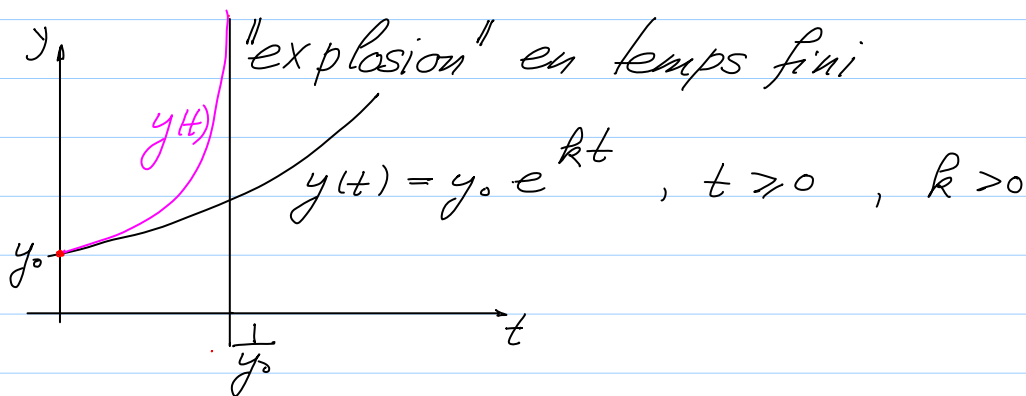 y "explosion" en temps fini
y(t)
y(t) = y₀ e^{kt} , t ⩾ 0 , k > 0
y₀
t
1/y₀